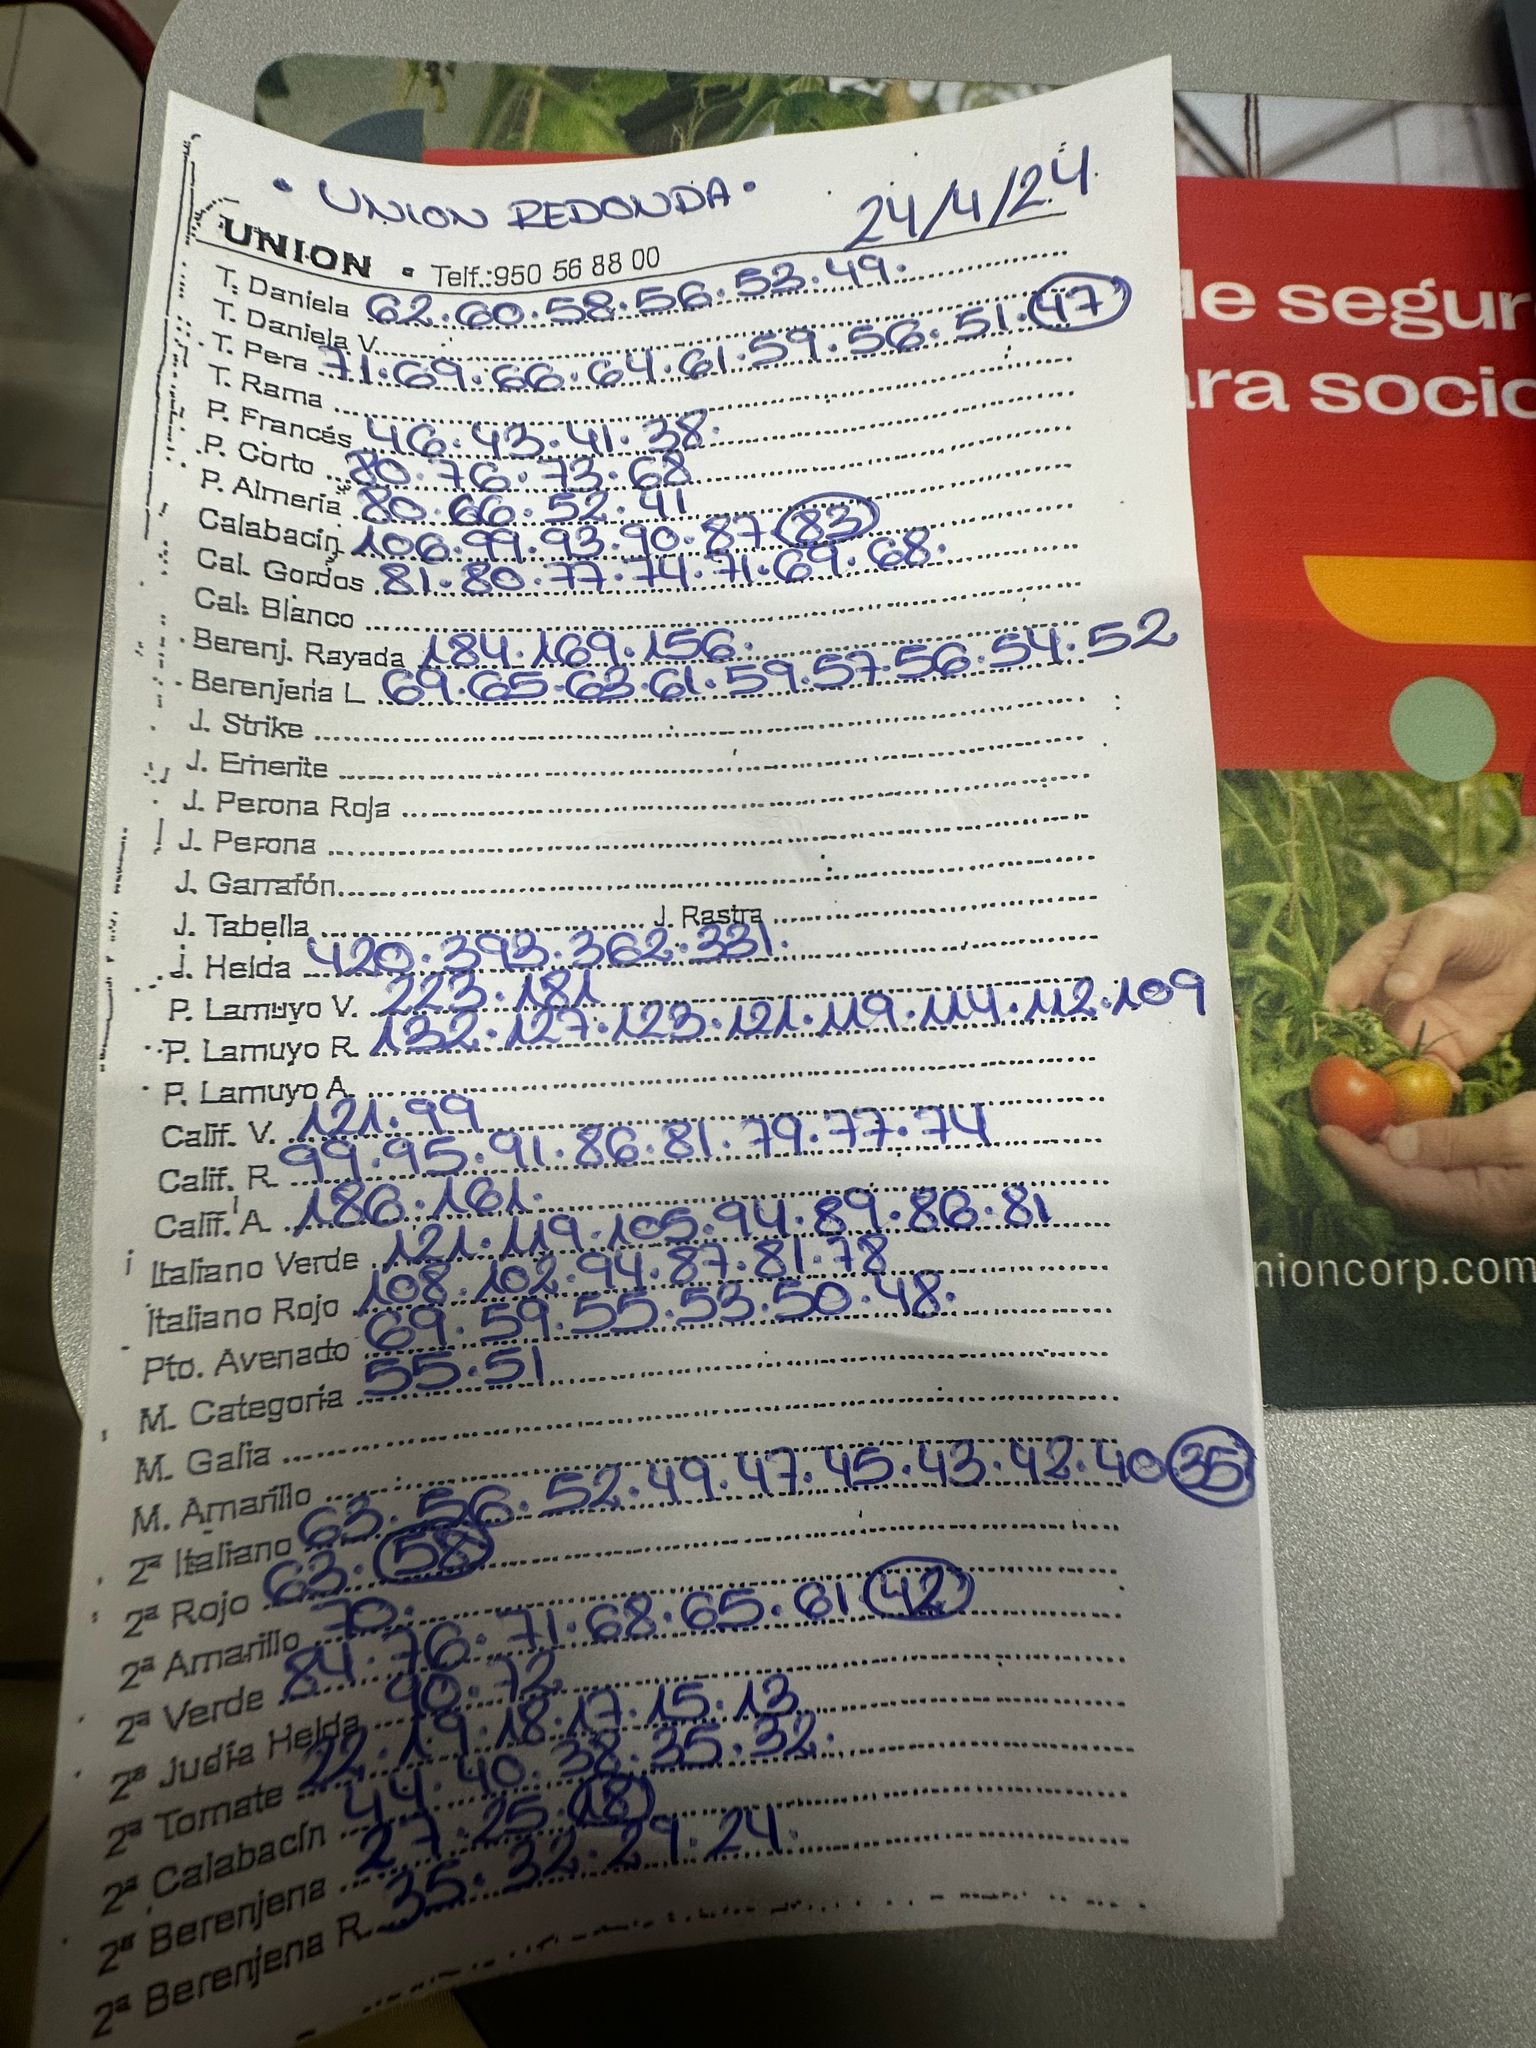 • UNION REDONDA •
24/4/24.
UNION • Telf.:950 56 88 00
T. Daniela 62.60.58.56.53.49.
T. Daniela V.
T. Pera 71.69.66.64.61.59.56.51.47
T. Rama
P. Francés 46.43.41.38.
P. Corto 80.76.73.68
P. Almería 80.66.52.41
Calabacín 106.99.93.90.87.83
Cal. Gordos 81.80.77.74.71.69.68.
Cal. Blanco
Berenj. Rayada 184.169.156.
Berenjena L 69.65.63.61.59.57.56.54.52
J. Strike
J. Emerite
J. Perona Roja
J. Perona
J. Garrafón
J. Tabella J. Rastra
J. Helda 420.393.362.331.
P. Lamuyo V. 223.181
P. Lamuyo R. 132.127.123.121.119.114.112.109
P. Lamuyo A.
Calif. V. 121.99
Calif. R. 99.95.91.86.81.79.77.74
Calif. A. 186.161.
Italiano Verde 121.119.105.94.89.86.81
Italiano Rojo 108.102.94.87.81.78
Pto. Avenado 69.59.55.53.50.48.
M. Categoría 55.51
M. Galia
M. Amarillo
2ª Italiano 63.56.52.49.47.45.43.42.40 35
2ª Rojo 63.58
2ª Amarillo 70.
2ª Verde 84.76.71.68.65.61.42
2ª Judía Helda 90.72
2ª Tomate 22.19.18.17.15.13
2ª Calabacín 44.40.38.35.32.
2ª Berenjena 27.25.18
2ª Berenjena R. 35.32.29.24.
de segur
ara socio
nioncorp.com